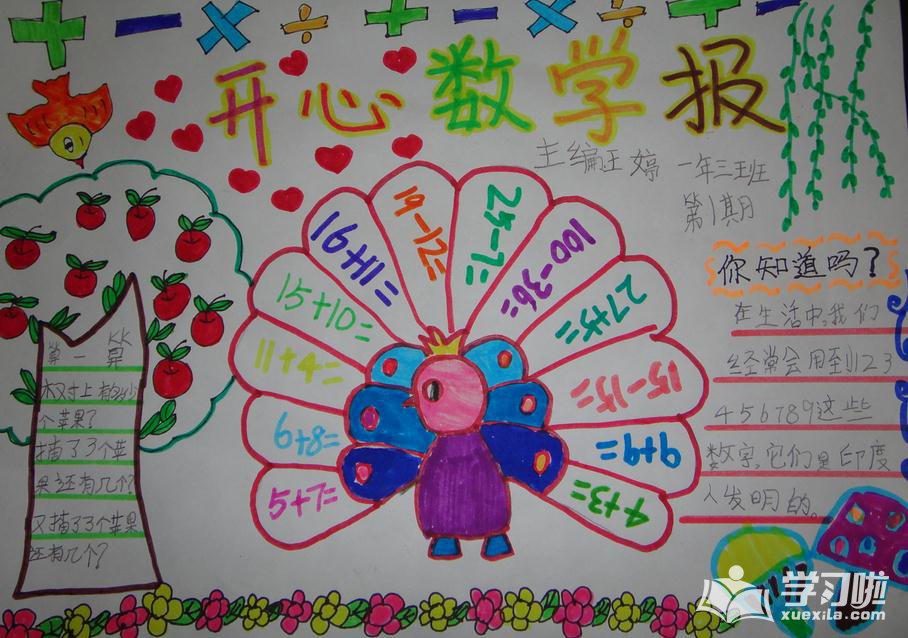 + − × ÷ + − × ÷ +
开心数学报
主编汪婷 一年三班
第1期
5+7=
6+8=
11+4=
15+10=
16+11=
19-12=
25-7=
100-36=
27+5=
15-15=
9+9=
4+3=
算一算
树上有多少
个苹果?
摘了3个苹
果还有几个?
又摘了3个苹果
还有几个?
你知道吗?
在生活中,我们
经常会用到123
456789这些
数字,它们是印度
人发明的。
学习啦
xuexila.com